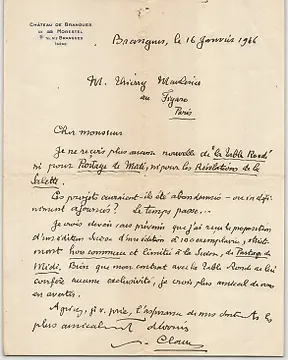 CHÂTEAU DE BRANGUES
MORESTEL
BRANGUES
ISÈRE
Brangues, le 16 Janvier 1946
M. Thierry Maulnier
au Figaro
Paris
Cher monsieur
Je ne reçois plus aucune nouvelle de "la Table Ronde"
ni pour Partage de Midi, ni pour les Révélations de la
Salette.
Ces projets auraient-ils été abandonnés – ou indéfi-
niment ajournés? Le temps passe...
Je crois devoir vous prévenir que j'ai reçu la proposition
d'une édition à 100 exemplaires, stricte-
ment hors commerce et limitée à la Suisse, de Partage de
Midi. Bien que mon contrat avec la Table Ronde ne lui
confère aucune exclusivité, je crois plus amical de vous
en avertir.
Agréez, je v. prie, l'assurance de mes sentiments les
plus amicalement dévoués
P. Claudel